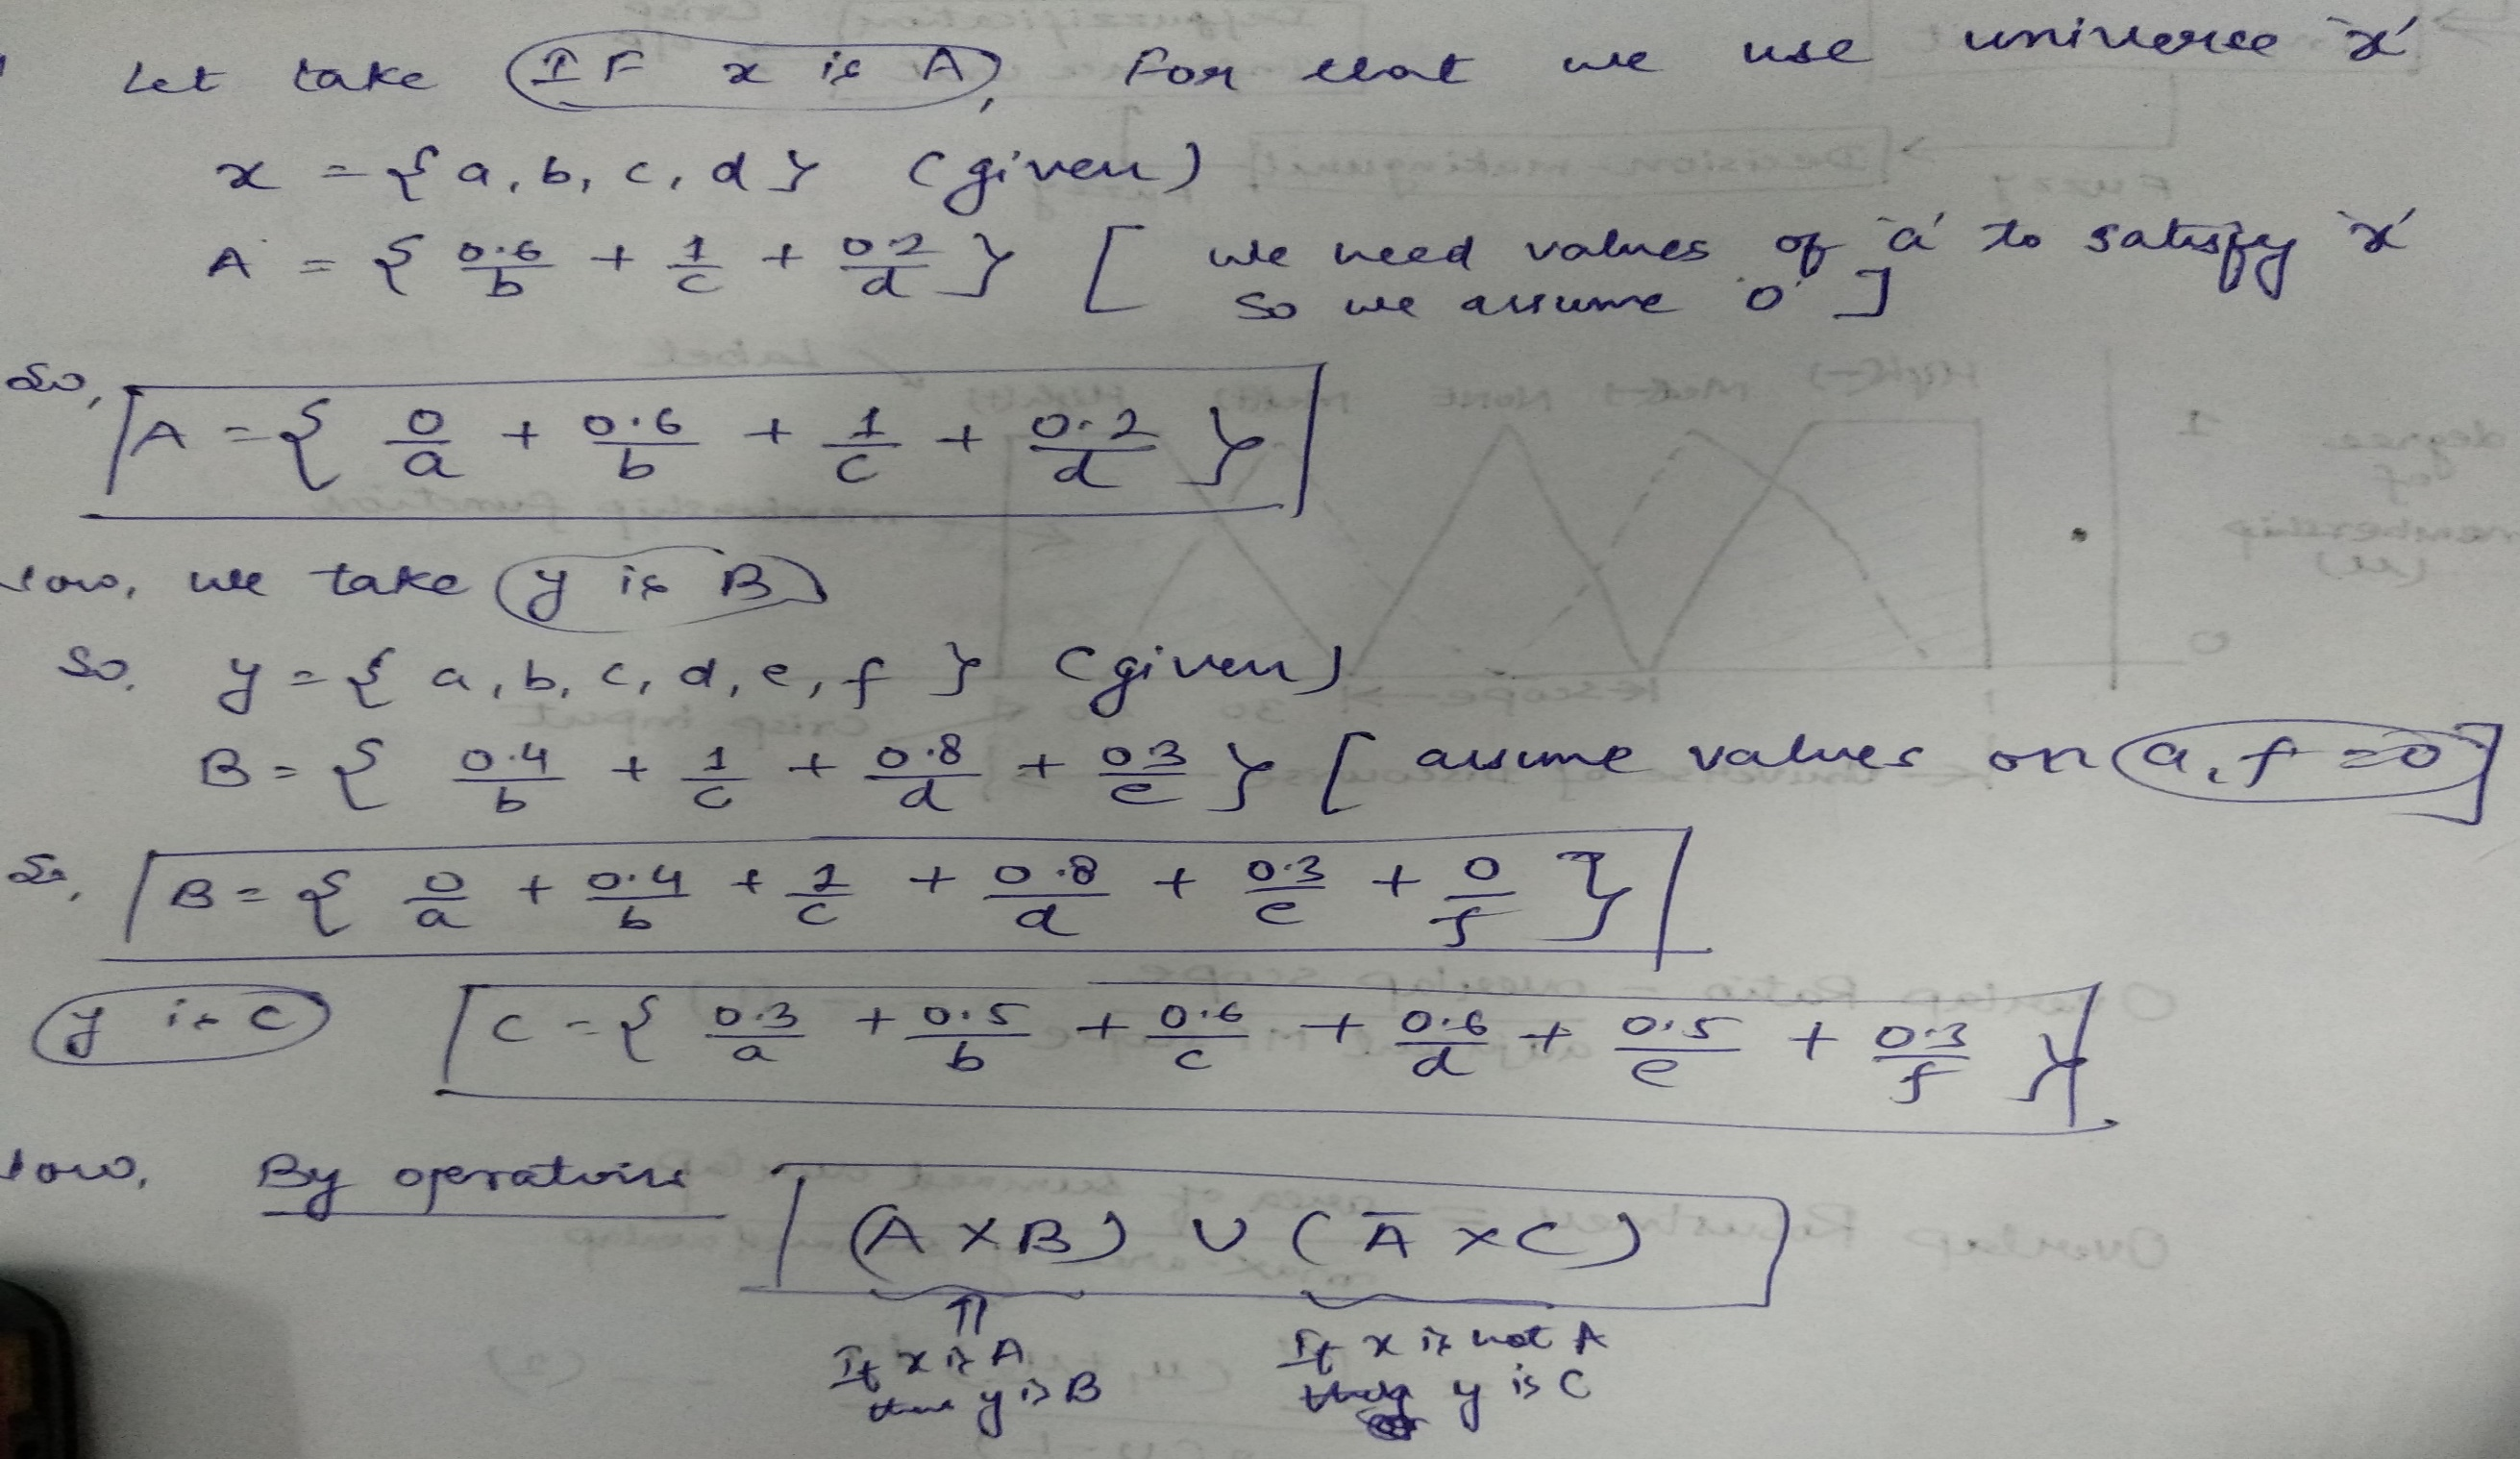 Let take IF x is A, For that we use universe `x'
x = { a, b, c, d } (given)
A = { 0.6/b + 1/c + 0.2/d } [ we need values of `a' to satisfy `x'
so we assume `0' ]
So, A = { 0/a + 0.6/b + 1/c + 0.2/d }
low, we take y is B
So, y = { a, b, c, d, e, f } (given)
B = { 0.4/b + 1/c + 0.8/d + 0.3/e } [ assume values on a, f = 0 ]
So, B = { 0/a + 0.4/b + 1/c + 0.8/d + 0.3/e + 0/f }
y is C C = { 0.3/a + 0.5/b + 0.6/c + 0.6/d + 0.5/e + 0.3/f }
low, By operations (A × B) ∪ (A̅ × C)
If x is A If x is not A
then y is B y is C